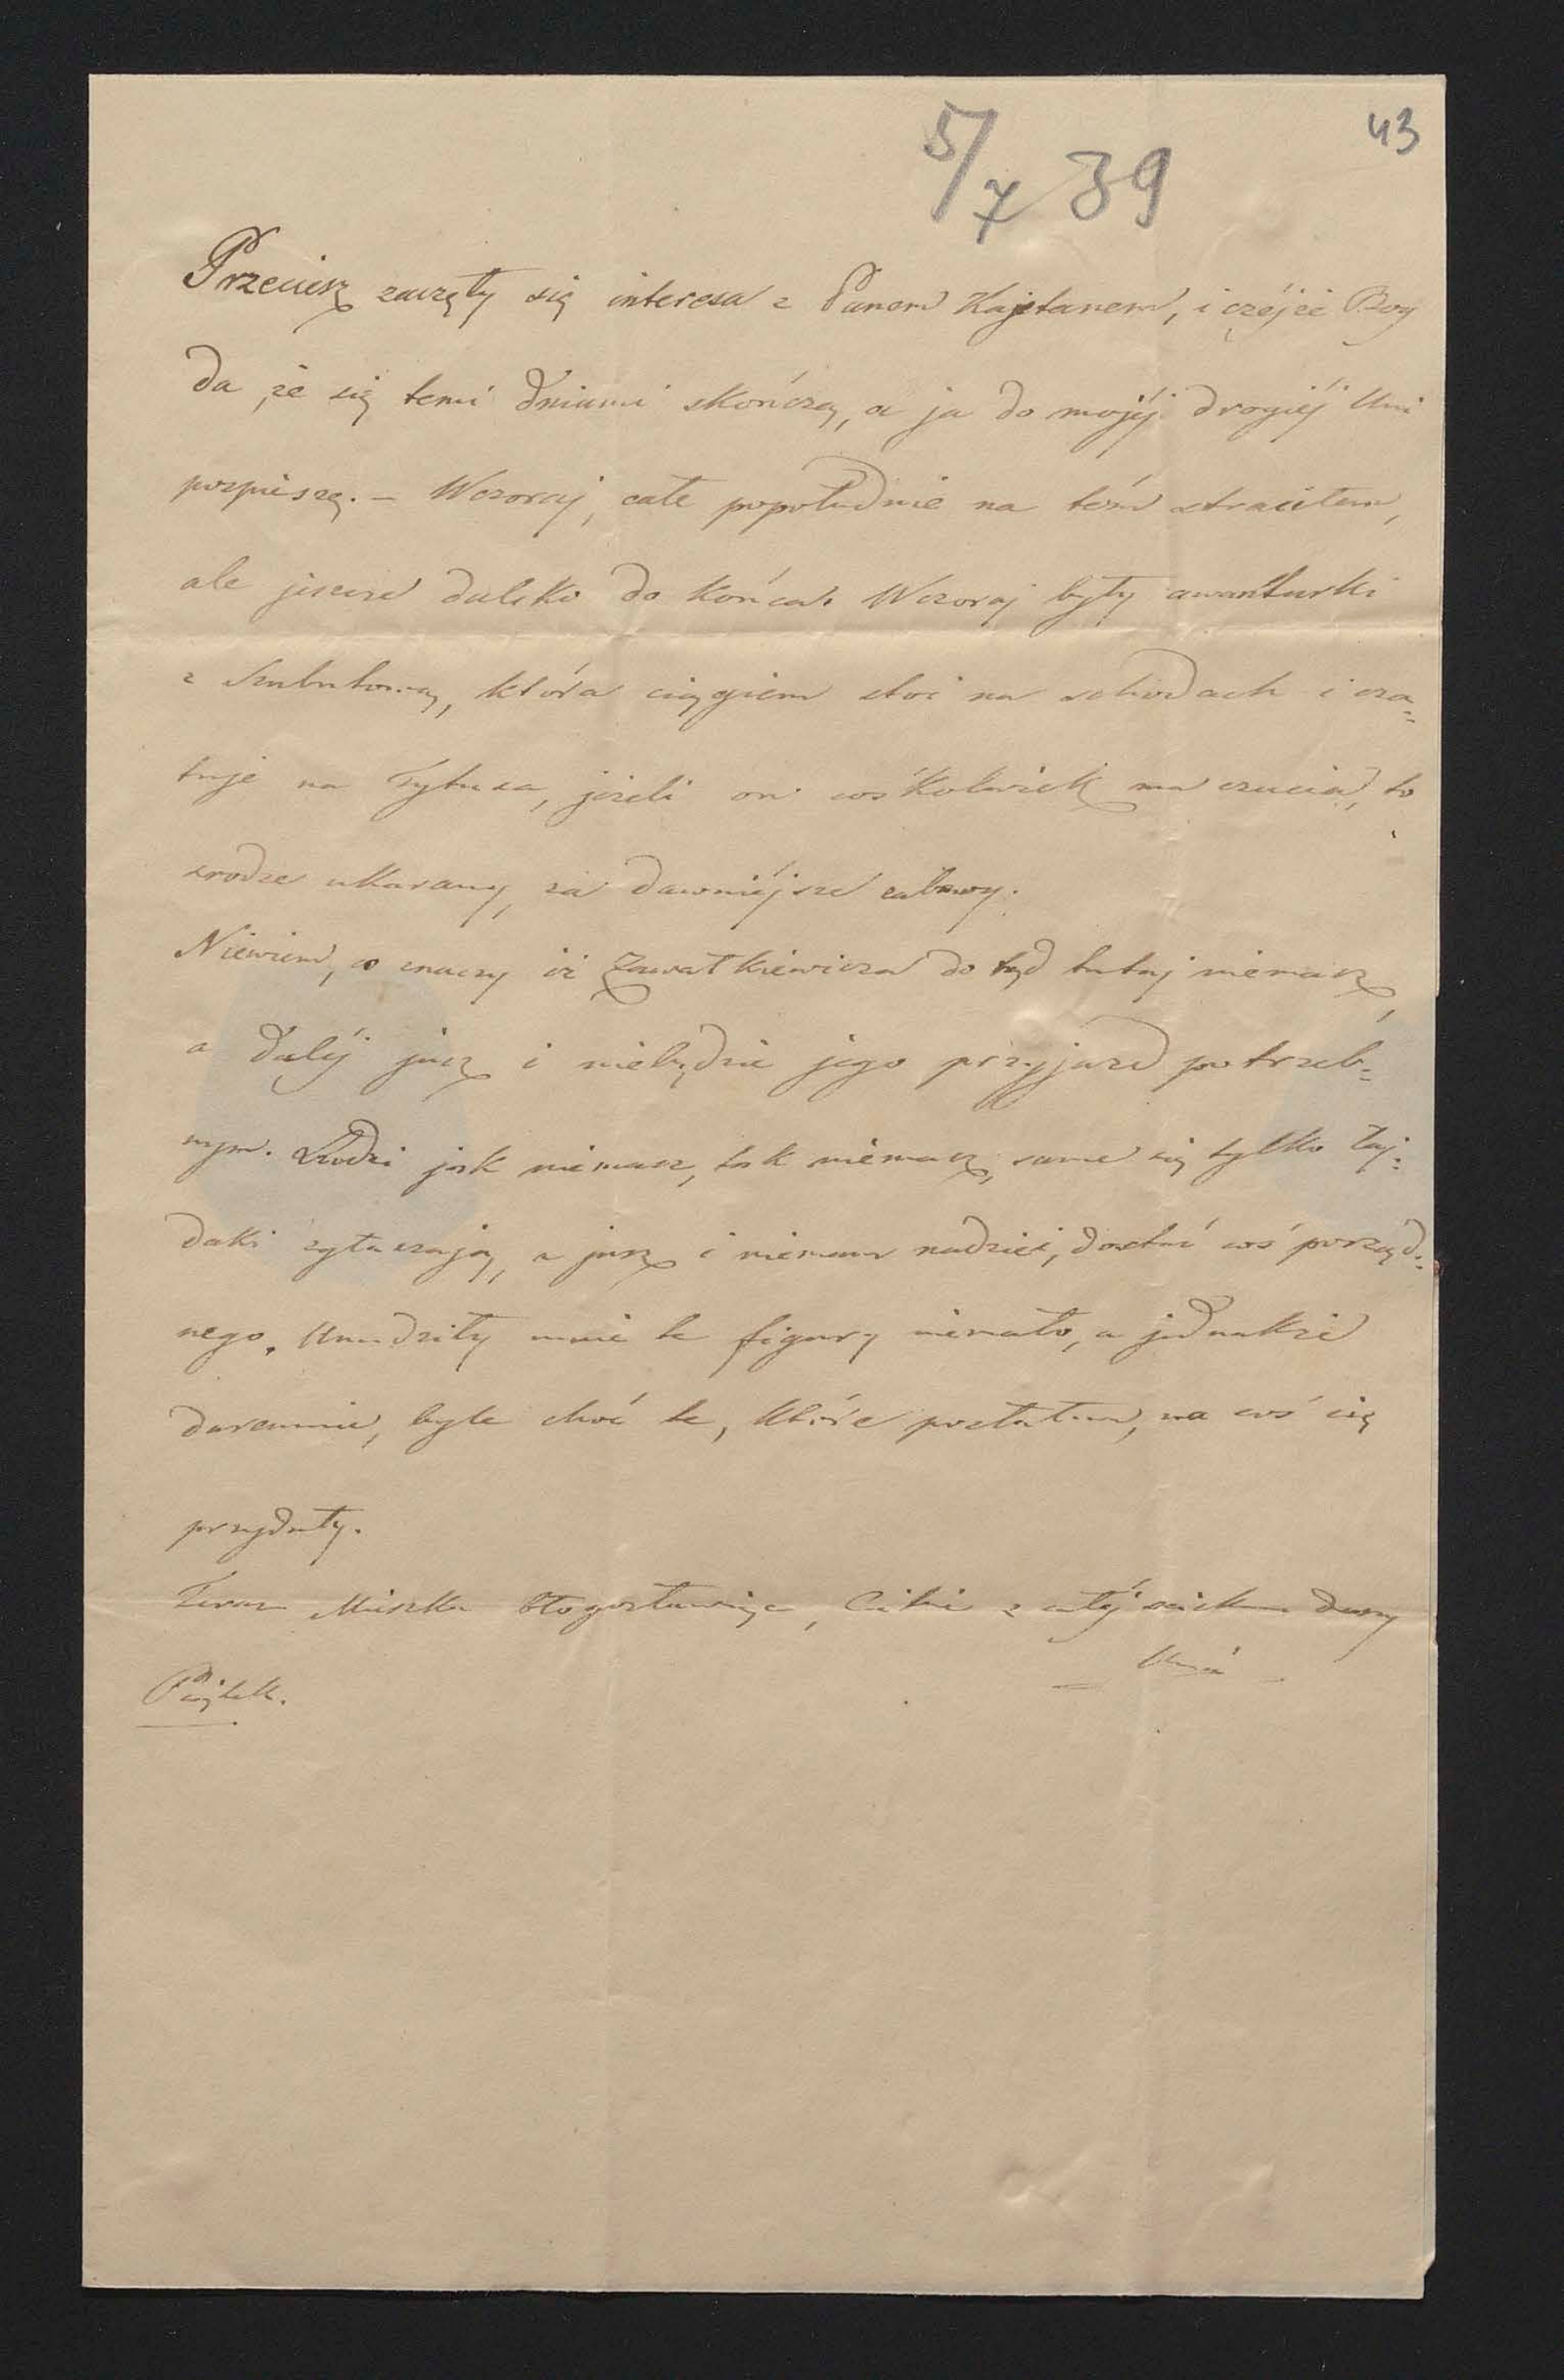 43
5/7 39
Przeciesz zaczęły się interesa z Panem Kajetanem, i czéjei Bog
da, że się temi dniami skończą, a ja do mojéj drogiéj Uni
pospieszę. – Wczoraj, całe popołudnie na tém straciłem,
ale jeszcze daleko do końca. Wczoraj były awanturki
z , która ciągiem stoi na schodach i cza=
tuje na Tytusa, jeżeli on cośkolwiek ma czucia, to
srodze ukarany, za dawniéjsze zabawy.
Niewiem, co znaczy iż Zawałkiewicza do tąd tutaj niémasz,
a daléj jusz i niebędzie jego przyjazd potrzeb=
nym. Ludzi jak niémasz, tak niémasz, same się tylko łaj=
daki zgłaszają, a jusz i niémam nadziei, dostać coś porząd=
nego. Unudziły mnie te figury niémało, a jednakże
daremnie, byle choć te, które posłałem, na coś się
przydały.
Teraz Miszka błogosławiąc, Ciebie z całéj sciskam duszy
Piątek.